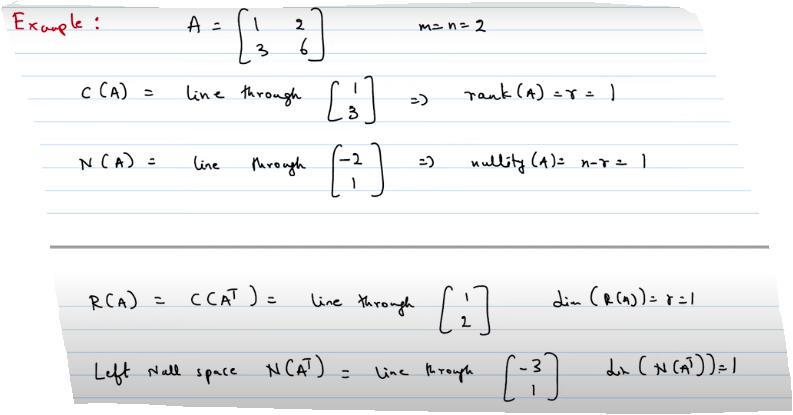 Example : A = [1 2; 3 6] m=n=2
C(A) = line through [1; 3] => rank(A) = r = 1
N(A) = line through [-2; 1] => nullity(A) = n-r = 1
R(A) = C(A^T) = line through [1; 2] dim(R(A)) = r = 1
Left Null space N(A^T) = line through [-3; 1] dim(N(A^T)) = 1